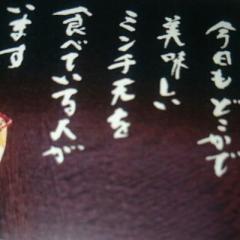 今日もどこかで
美味しい
ミンチ天を
食べている人が
います